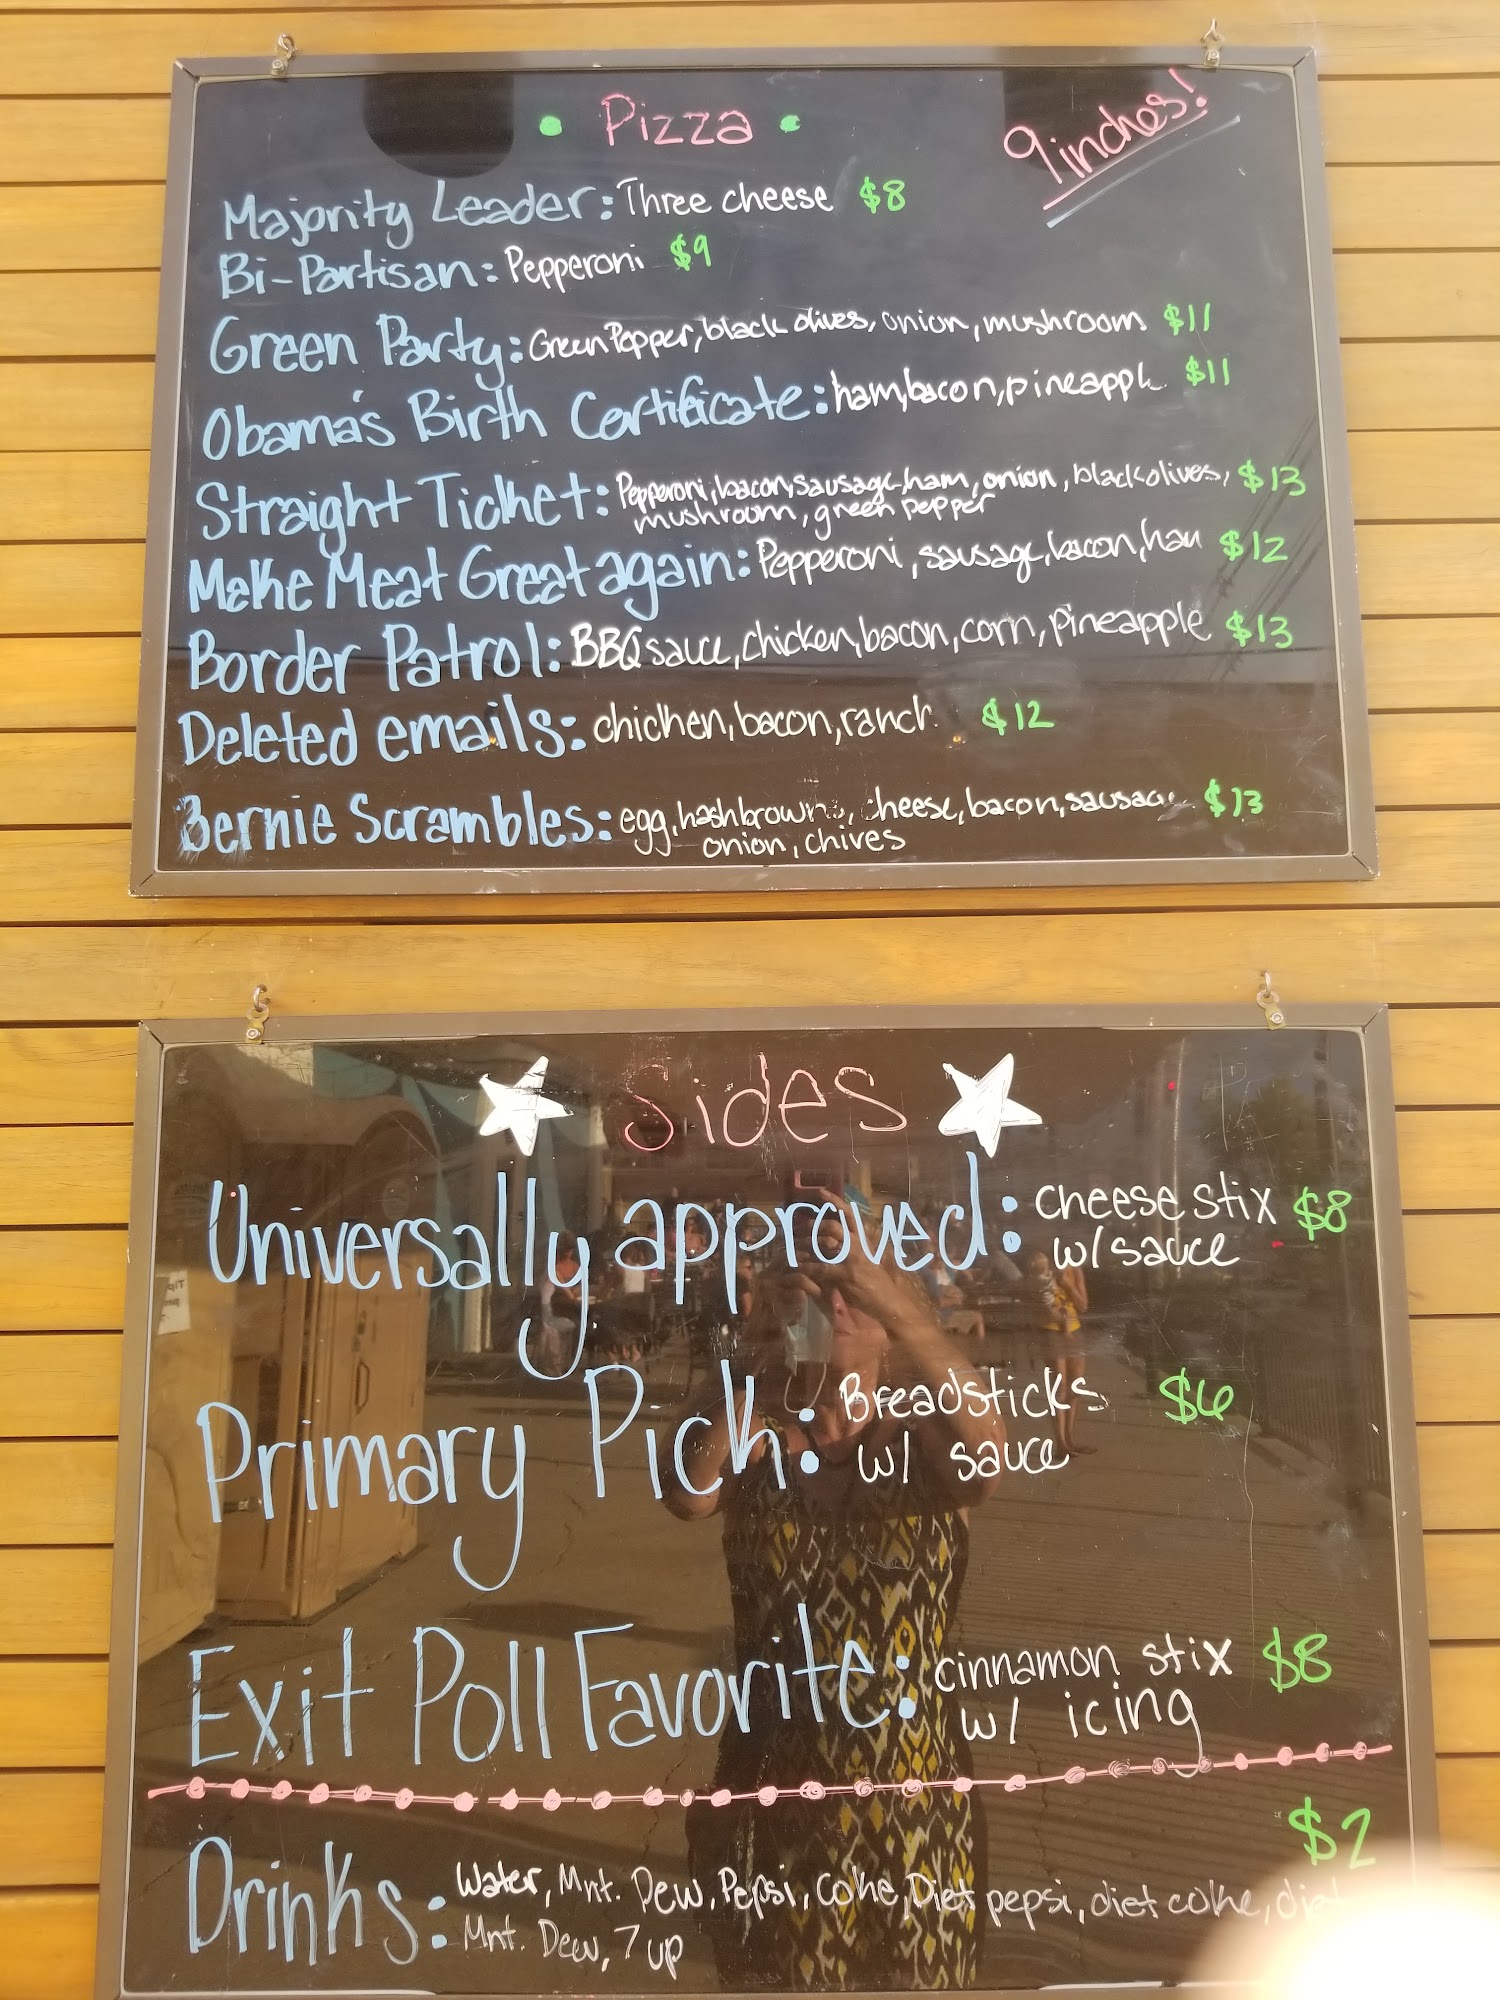 • Pizza •
9 inches!
Majority Leader: Three cheese $8
Bi-Partisan: Pepperoni $9
Green Party: Green Pepper, black olives, onion, mushroom $11
Obama's Birth Certificate: ham, bacon, pineapple $11
Straight Ticket: Pepperoni, bacon, sausage, ham, onion, black olives, $13
mushroom, green pepper
Make Meat Great again: Pepperoni, sausage, bacon, ham $12
Border Patrol: BBQ sauce, chicken, bacon, corn, pineapple $13
Deleted emails: chicken, bacon, ranch $12
Bernie Scrambles: egg, hashbrowns, cheese, bacon, sausage $13
onion, chives
Sides
Universally approved: cheese stix $8
w/ sauce
Primary Pick: Breadsticks $6
w/ sauce
Exit Poll Favorite: cinnamon stix $8
w/ icing
$2
Drinks: Water, Mnt. Dew, Pepsi, Coke, Diet pepsi, diet coke, diet
Mnt. Dew, 7 up